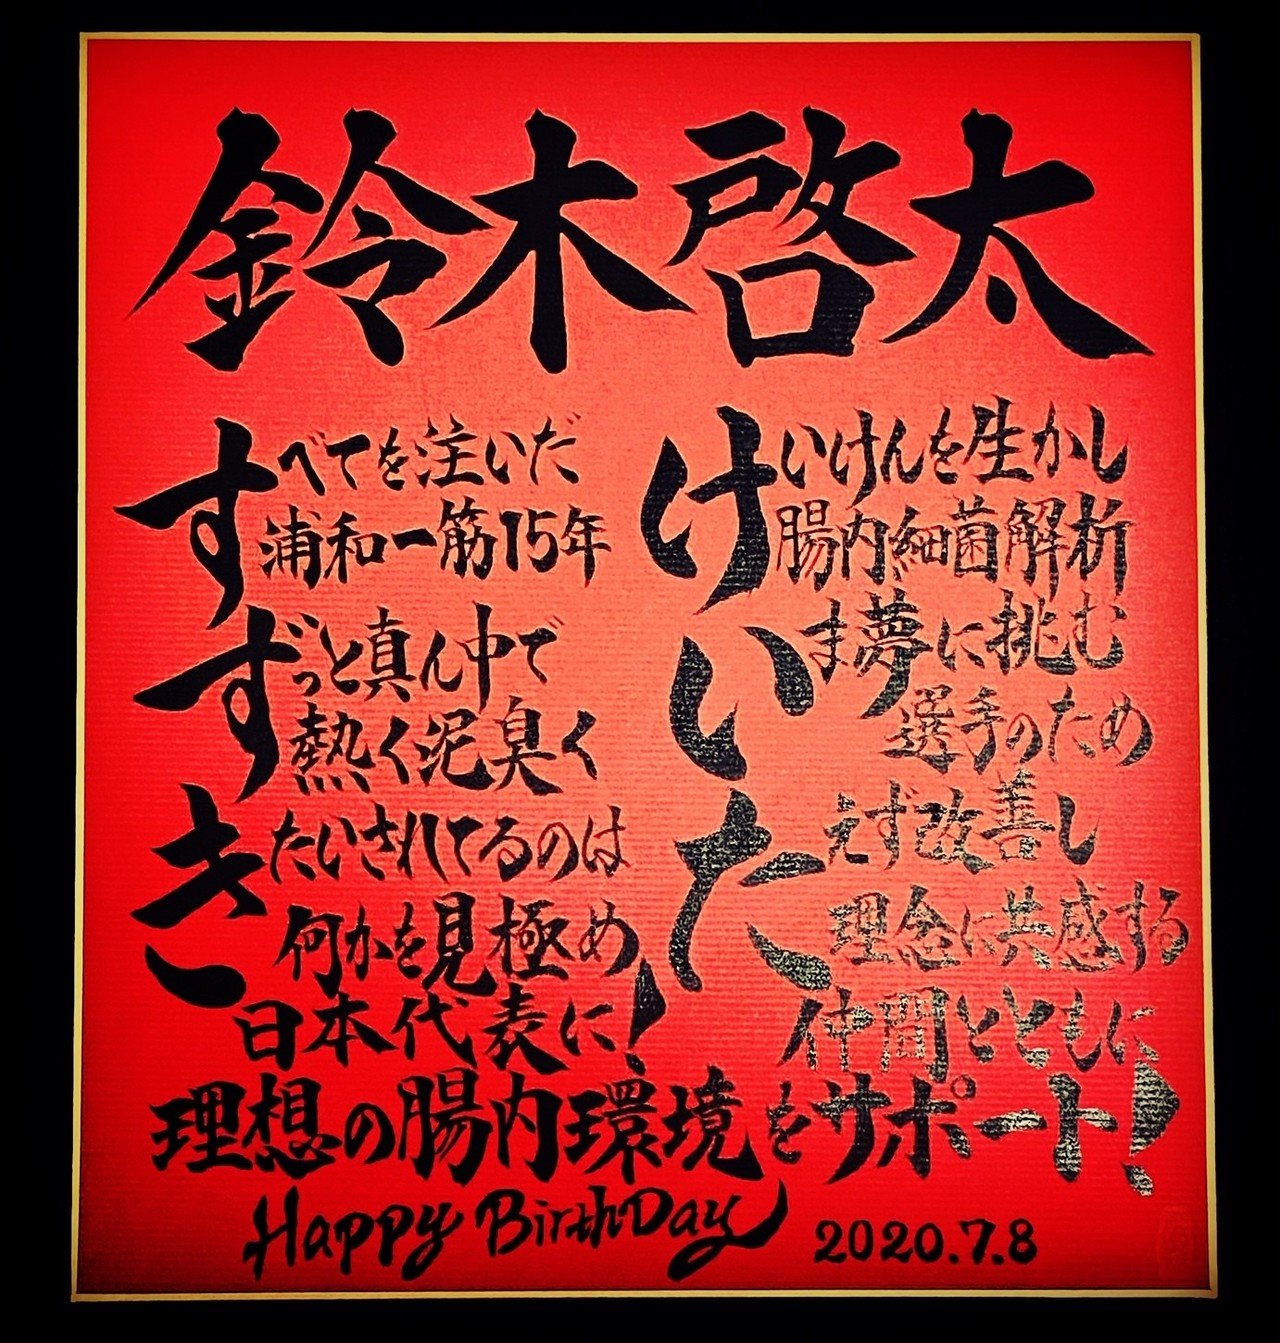 鈴木啓太
すべてを注いだ
浦和一筋15年
ずっと真ん中で
熱く泥臭く
きたいされてるのは
何かを見極め
日本代表に!
けいけんを生かし
腸内細菌解析
いま夢に挑む
選手のため
たえず改善し
理念に共感する
仲間とともに
理想の腸内環境をサポート!
Happy BirthDay
2020.7.8